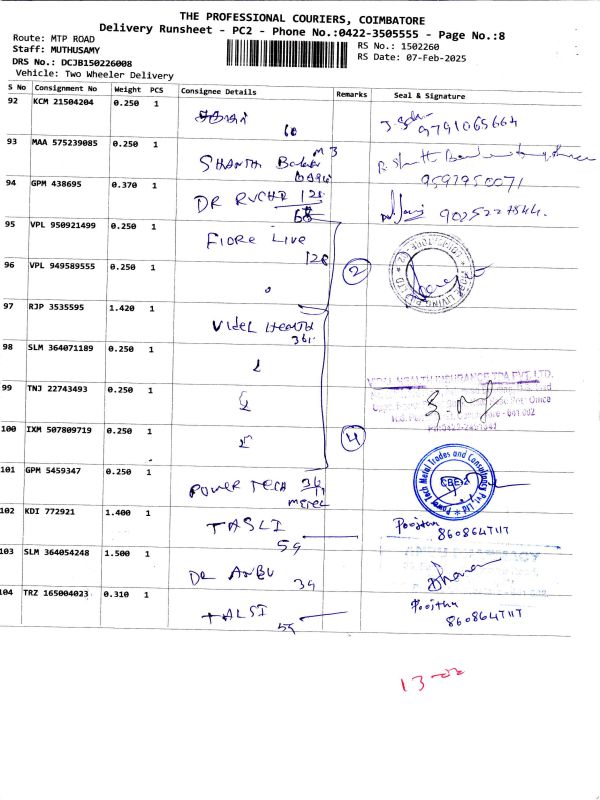 THE PROFESSIONAL COURIERS, COIMBATORE
Delivery Runsheet - PC2 - Phone No.:0422-3505555 - Page No.:8
Route: MTP ROAD
Staff: MUTHUSAMY
DRS No.: DCJB150226008
Vehicle: Two Wheeler Delivery
RS No.: 1502260
RS Date: 07-Feb-2025
S No Consignment No Weight PCS Consignee Details Remarks Seal & Signature
92 KCM 21504204 0.250 1
60 9791065664
93 MAA 575239085 0.250 1
SHANTHI
9597950071
94 GPM 438695 0.370 1
DR RUCHI 128
68
95 VPL 950921499 0.250 1
FIORE LIVE
128
2
96 VPL 949589555 0.250 1
97 RJP 3535595 1.420 1
VIDEL HEALTH
361
98 SLM 364071189 0.250 1
VIDAL HEALTH INSURANCE TPA PVT. LTD.
99 TNJ 22743493 0.250 1
100 IXM 507809719 0.250 1
4
101 GPM 5459347 0.250 1
POWER TECH
Power Tech Metal Trades and Consultancy Pvt. Ltd
CBE-2
102 KDI 772921 1.400 1
TASLI
59
8608647117
103 SLM 364054248 1.500 1
DR ANBU 39
104 TRZ 165004023 0.310 1
TALSI
59
8608647117
13-22